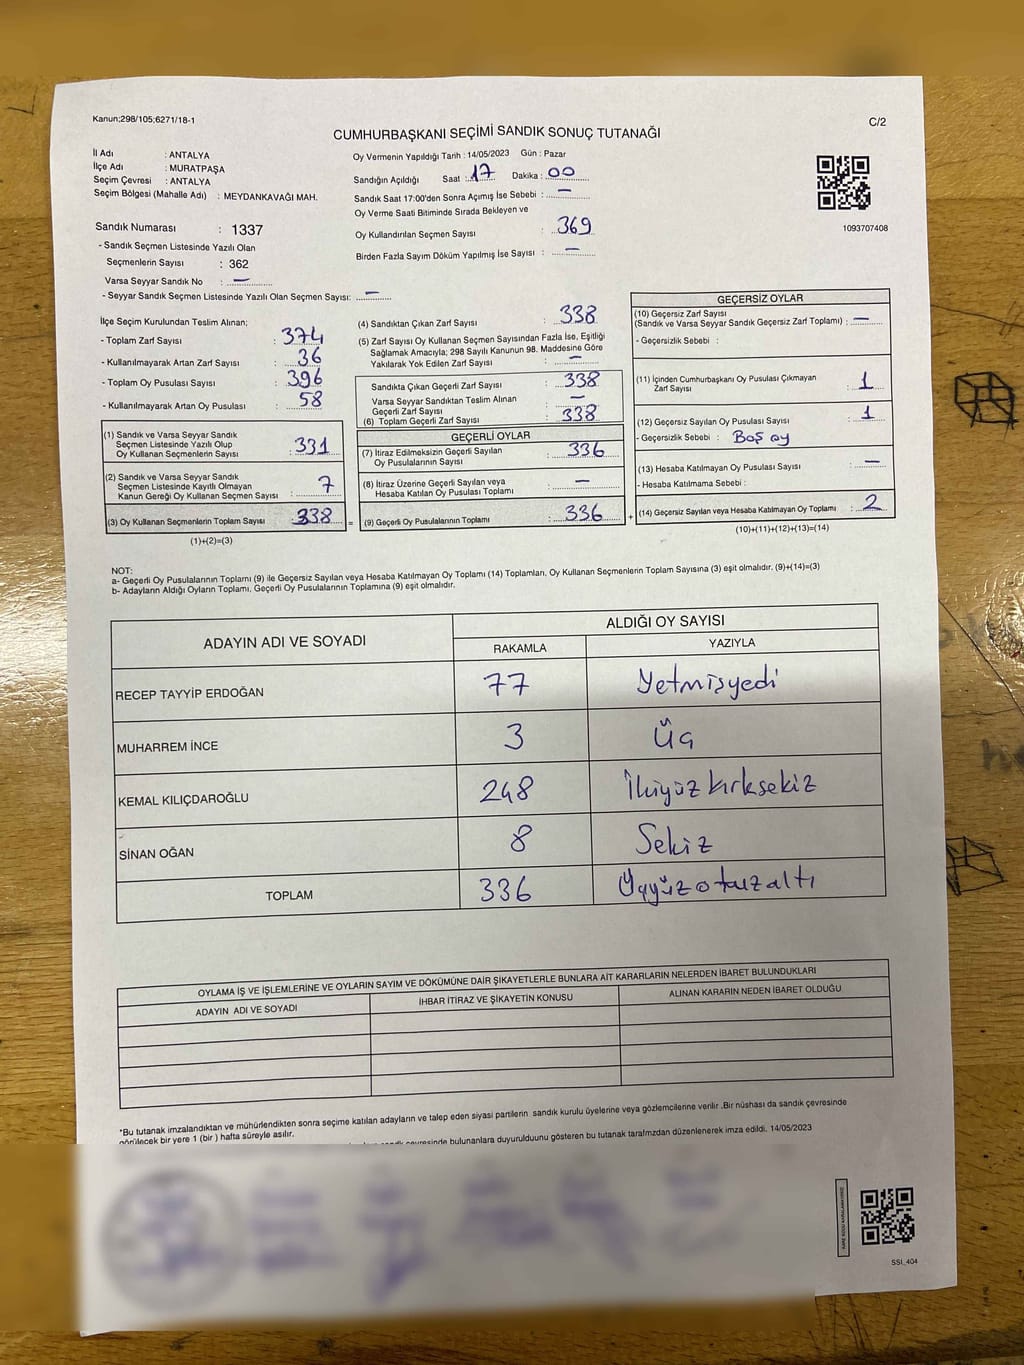 Kanun;298/105;6271/18-1
C/2
CUMHURBAŞKANI SEÇİMİ SANDIK SONUÇ TUTANAĞI
İl Adı : ANTALYA
İlçe Adı : MURATPAŞA
Seçim Çevresi : ANTALYA
Seçim Bölgesi (Mahalle Adı) : MEYDANKAVAĞI MAH.
Oy Vermenin Yapıldığı Tarih : 14/05/2023 Gün : Pazar
Sandığın Açıldığı Saat : 17 Dakika : 00
Sandık Saat 17:00'den Sonra Açımış İse Sebebi : —
Oy Verme Saati Bitiminde Sırada Bekleyen ve
Oy Kullandırılan Seçmen Sayısı : 369
Birden Fazla Sayım Döküm Yapılmış İse Sayısı : —
1093707408
Sandık Numarası : 1337
- Sandık Seçmen Listesinde Yazılı Olan
Seçmenlerin Sayısı : 362
Varsa Seyyar Sandık No : —
- Seyyar Sandık Seçmen Listesinde Yazılı Olan Seçmen Sayısı: —
İlçe Seçim Kurulundan Teslim Alınan;
- Toplam Zarf Sayısı : 374
- Kullanılmayarak Artan Zarf Sayısı : 36
- Toplam Oy Pusulası Sayısı : 396
- Kullanılmayarak Artan Oy Pusulası : 58
(1) Sandık ve Varsa Seyyar Sandık
Seçmen Listesinde Yazılı Olup
Oy Kullanan Seçmenlerin Sayısı : 331
(2) Sandık ve Varsa Seyyar Sandık
Seçmen Listesinde Kayıtlı Olmayan
Kanun Gereği Oy Kullanan Seçmen Sayısı : 7
(3) Oy Kullanan Seçmenlerin Toplam Sayısı : 338
(1)+(2)=(3)
(4) Sandıktan Çıkan Zarf Sayısı : 338
(5) Zarf Sayısı Oy Kullanan Seçmen Sayısından Fazla İse, Eşitliği
Sağlamak Amacıyla; 298 Sayılı Kanunun 98. Maddesine Göre
Yakılarak Yok Edilen Zarf Sayısı : —
Sandıkta Çıkan Geçerli Zarf Sayısı : 338
Varsa Seyyar Sandıktan Teslim Alınan
Geçerli Zarf Sayısı : —
(6) Toplam Geçerli Zarf Sayısı : 338
GEÇERLİ OYLAR
(7) İtiraz Edilmeksizin Geçerli Sayılan
Oy Pusulalarının Sayısı : 336
(8) İtiraz Üzerine Geçerli Sayılan veya
Hesaba Katılan Oy Pusulası Toplamı : —
= (9) Geçerli Oy Pusulalarının Toplamı : 336 +
GEÇERSİZ OYLAR
(10) Geçersiz Zarf Sayısı
(Sandık ve Varsa Seyyar Sandık Geçersiz Zarf Toplamı) : —
- Geçersizlik Sebebi :
(11) İçinden Cumhurbaşkanı Oy Pusulası Çıkmayan
Zarf Sayısı : 1
(12) Geçersiz Sayılan Oy Pusulası Sayısı : 1
- Geçersizlik Sebebi : Boş oy
(13) Hesaba Katılmayan Oy Pusulası Sayısı : —
- Hesaba Katılmama Sebebi :
(14) Geçersiz Sayılan veya Hesaba Katılmayan Oy Toplamı : 2
(10)+(11)+(12)+(13)=(14)
NOT:
a- Geçerli Oy Pusulalarının Toplamı (9) ile Geçersiz Sayılan veya Hesaba Katılmayan Oy Toplamı (14) Toplamları, Oy Kullanan Seçmenlerin Toplam Sayısına (3) eşit olmalıdır. (9)+(14)=(3)
b- Adayların Aldığı Oyların Toplamı, Geçerli Oy Pusulalarının Toplamına (9) eşit olmalıdır.
ADAYIN ADI VE SOYADI
ALDIĞI OY SAYISI
RAKAMLA YAZIYLA
RECEP TAYYİP ERDOĞAN 77 Yetmişyedi
MUHARREM İNCE 3 Üç
KEMAL KILIÇDAROĞLU 248 İkiyüz kırksekiz
SİNAN OĞAN 8 Sekiz
TOPLAM 336 Üçyüz otuzaltı
OYLAMA İŞ VE İŞLEMLERİNE VE OYLARIN SAYIM VE DÖKÜMÜNE DAİR ŞİKAYETLERLE BUNLARA AİT KARARLARIN NELERDEN İBARET BULUNDUKLARI
ADAYIN ADI VE SOYADI
İHBAR İTİRAZ VE ŞİKAYETİN KONUSU
ALINAN KARARIN NEDEN İBARET OLDUĞU
*Bu tutanak imzalandıktan ve mühürlendikten sonra seçime katılan adayların ve talep eden siyasi partilerin sandık kurulu üyelerine veya gözlemcilerine verilir .Bir nüshası da sandık çevresinde
görülecek bir yere 1 (bir ) hafta süreyle asılır.
sandık çevresinde bulunanlara duyurulduunu gösteren bu tutanak tarafımzdan düzenlenerek imza edildi. 14/05/2023
SSI_404